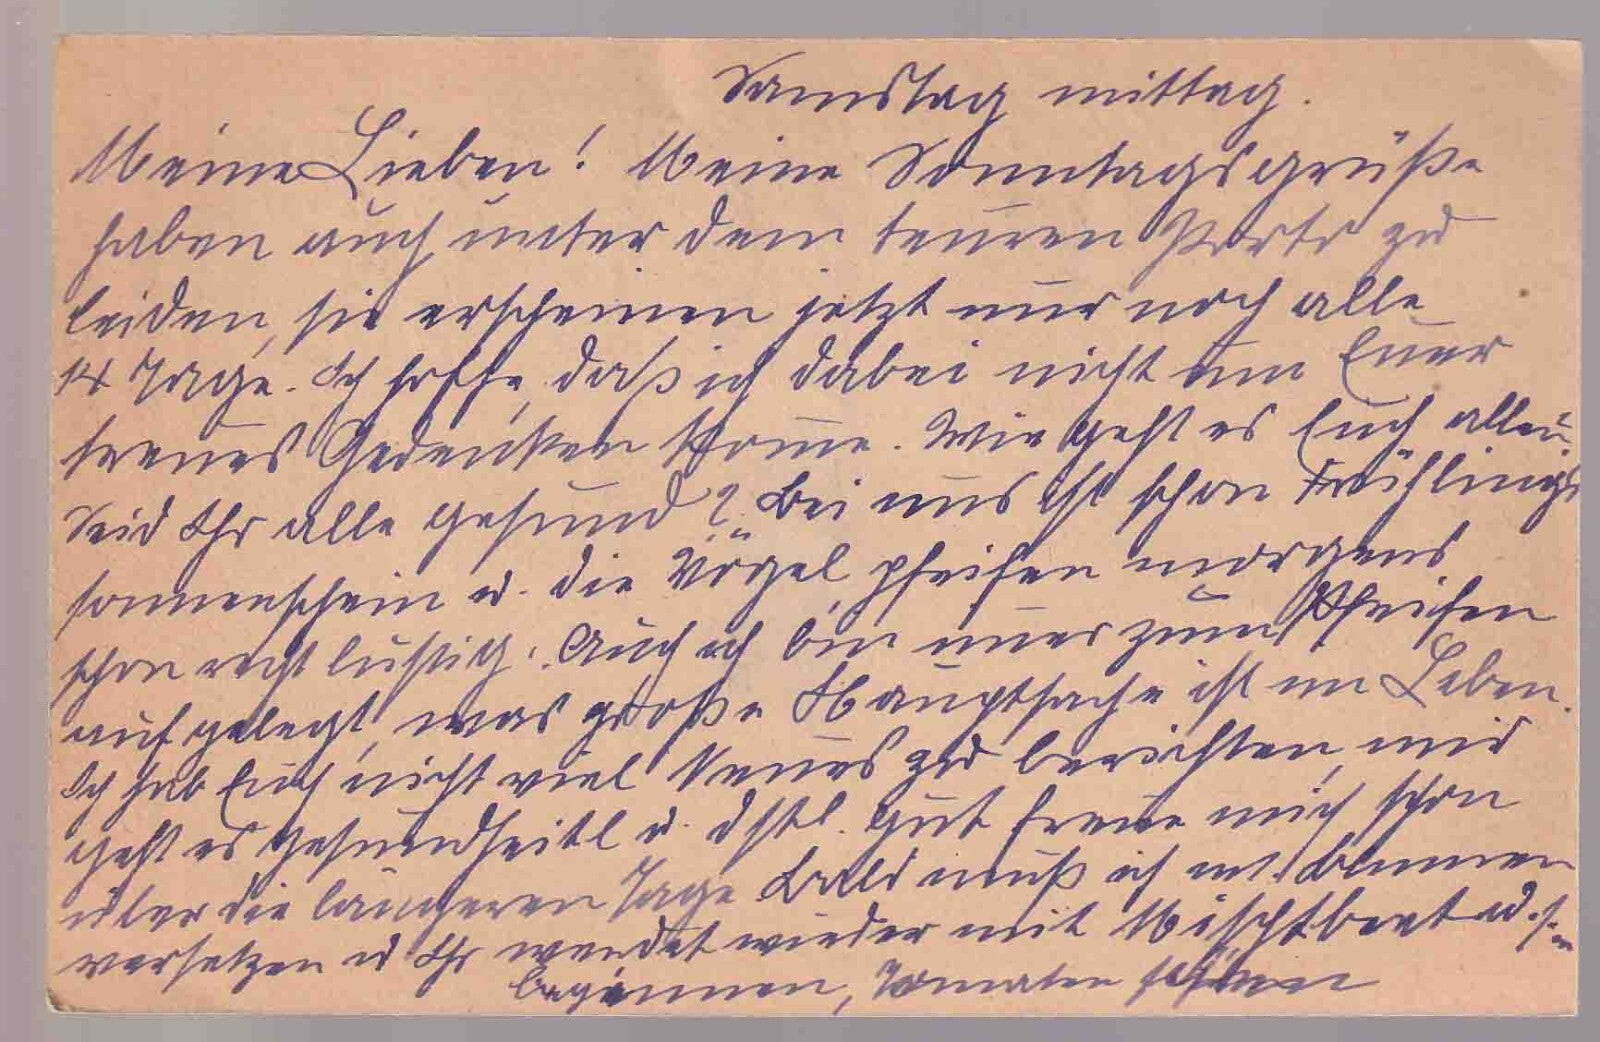 Samstag mittag.
Meine Lieben! Meine Sonntagsgrüße
haben auch unter dem teuren Porto zu
leiden, sie erscheinen jetzt nur noch alle
14 Tage. Ich hoffe, daß ich dabei nicht um Euer
treues Gedenken komme. Wie geht es Euch allen
Seid Ihr alle gesund? Bei uns ist schon Frühlings
sonnenschein u. die Vögel pfeifen morgens
schon recht lustig. Auch ich bin zum Pfeifen
aufgelegt, was große Hauptsache ist im Leben.
Ich hab Euch nicht viel Neues zu berichten, mir
geht es gesundheitl u. gut freue mich schon
über die längeren Tage Bald muß ich Blumen
versetzen u Ihr werdet wieder mit Mistbeet
beginnen, Tomaten